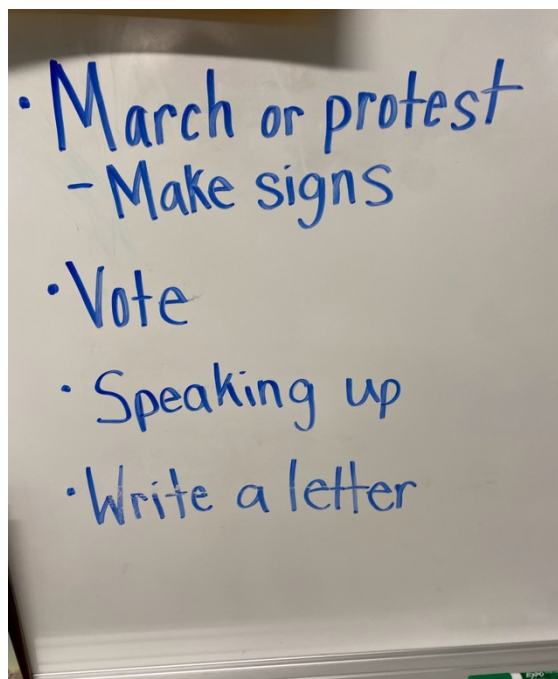 • March or protest
- Make signs
• Vote
• Speaking up
• Write a letter
EXPO